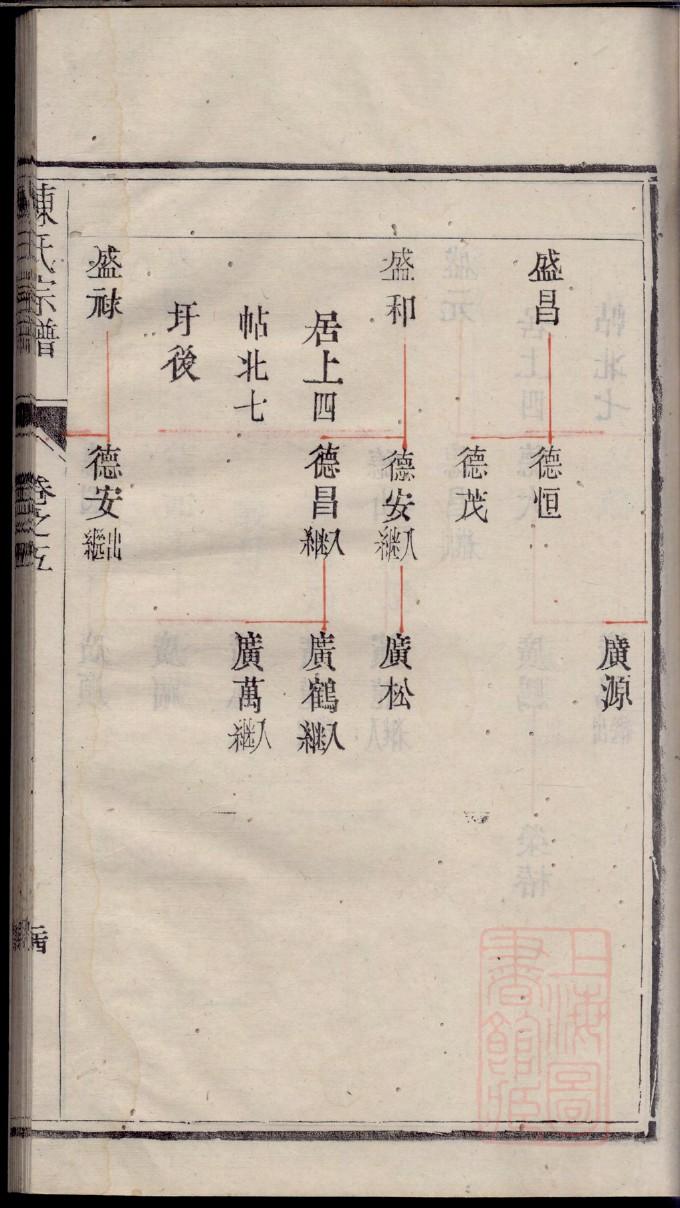 廣源
盛昌
德恒
德茂
盛和
德安入繼
廣松
居上四
德昌入繼
廣鶴入繼
帖北七
廣萬入繼
圩後
盛祿
德安出繼
陳氏宗譜
卷之五
上海圖書館藏